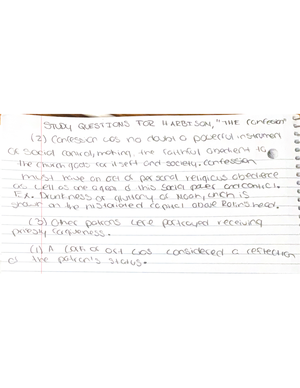 STUDY QUESTIONS FOR HARBISON, "THE Confession"
(2) Confession was no doubt a powerful instrument
of social control, making the faithful obedient to
the church goals for itself and society. Confession
must have an act of personal religious obedience
as well as one agent of this social power and control.
Ex. Drunkness or gluttony of Noah, which is
shown on the historiated capital above Rolin's head.
(3) Other patrons were portrayed receiving
priestly forgiveness.
(1) A work of art was considered a reflection
of the patron's status.